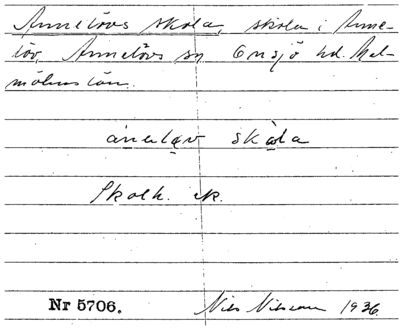 Annelövs skola, skola i Anne-
löv, Annelövs sn Onsjö hd. Mal-
möhus län.
skola
Skolk. ek.
Nr 5706. Nils Nilsson 1936